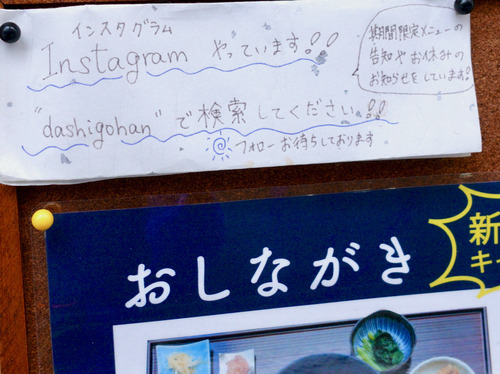 インスタグラム
Instagram やっています!!
期間限定メニューの
告知やお休みの
お知らせをしています!
"dashigohan" で検索してください。!!
フォローお待ちしております
おしながき
新
キ